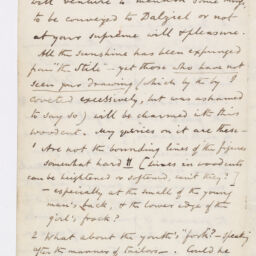 will venture to mention some may,
to be conveyed to Dalziel or not
at your supreme will & pleasure.
All the sunshine has been expunged
from "the Stile" — yet those who have not
seen your drawing (which by the by I
coveted excessively, but was ashamed
to say so) will be charmed with this
woodcut. My queries on it are these —
1 Are not the bounding lines of the figures
somewhat hard!! [Lines in woodcuts
can be heightened or softened, can't they?]
— especially at the small of the young
man's back, & the lower edge of the
girl's frock?
2 What about the youth's "fork"? — speaking
after the manner of tailors —. Could he